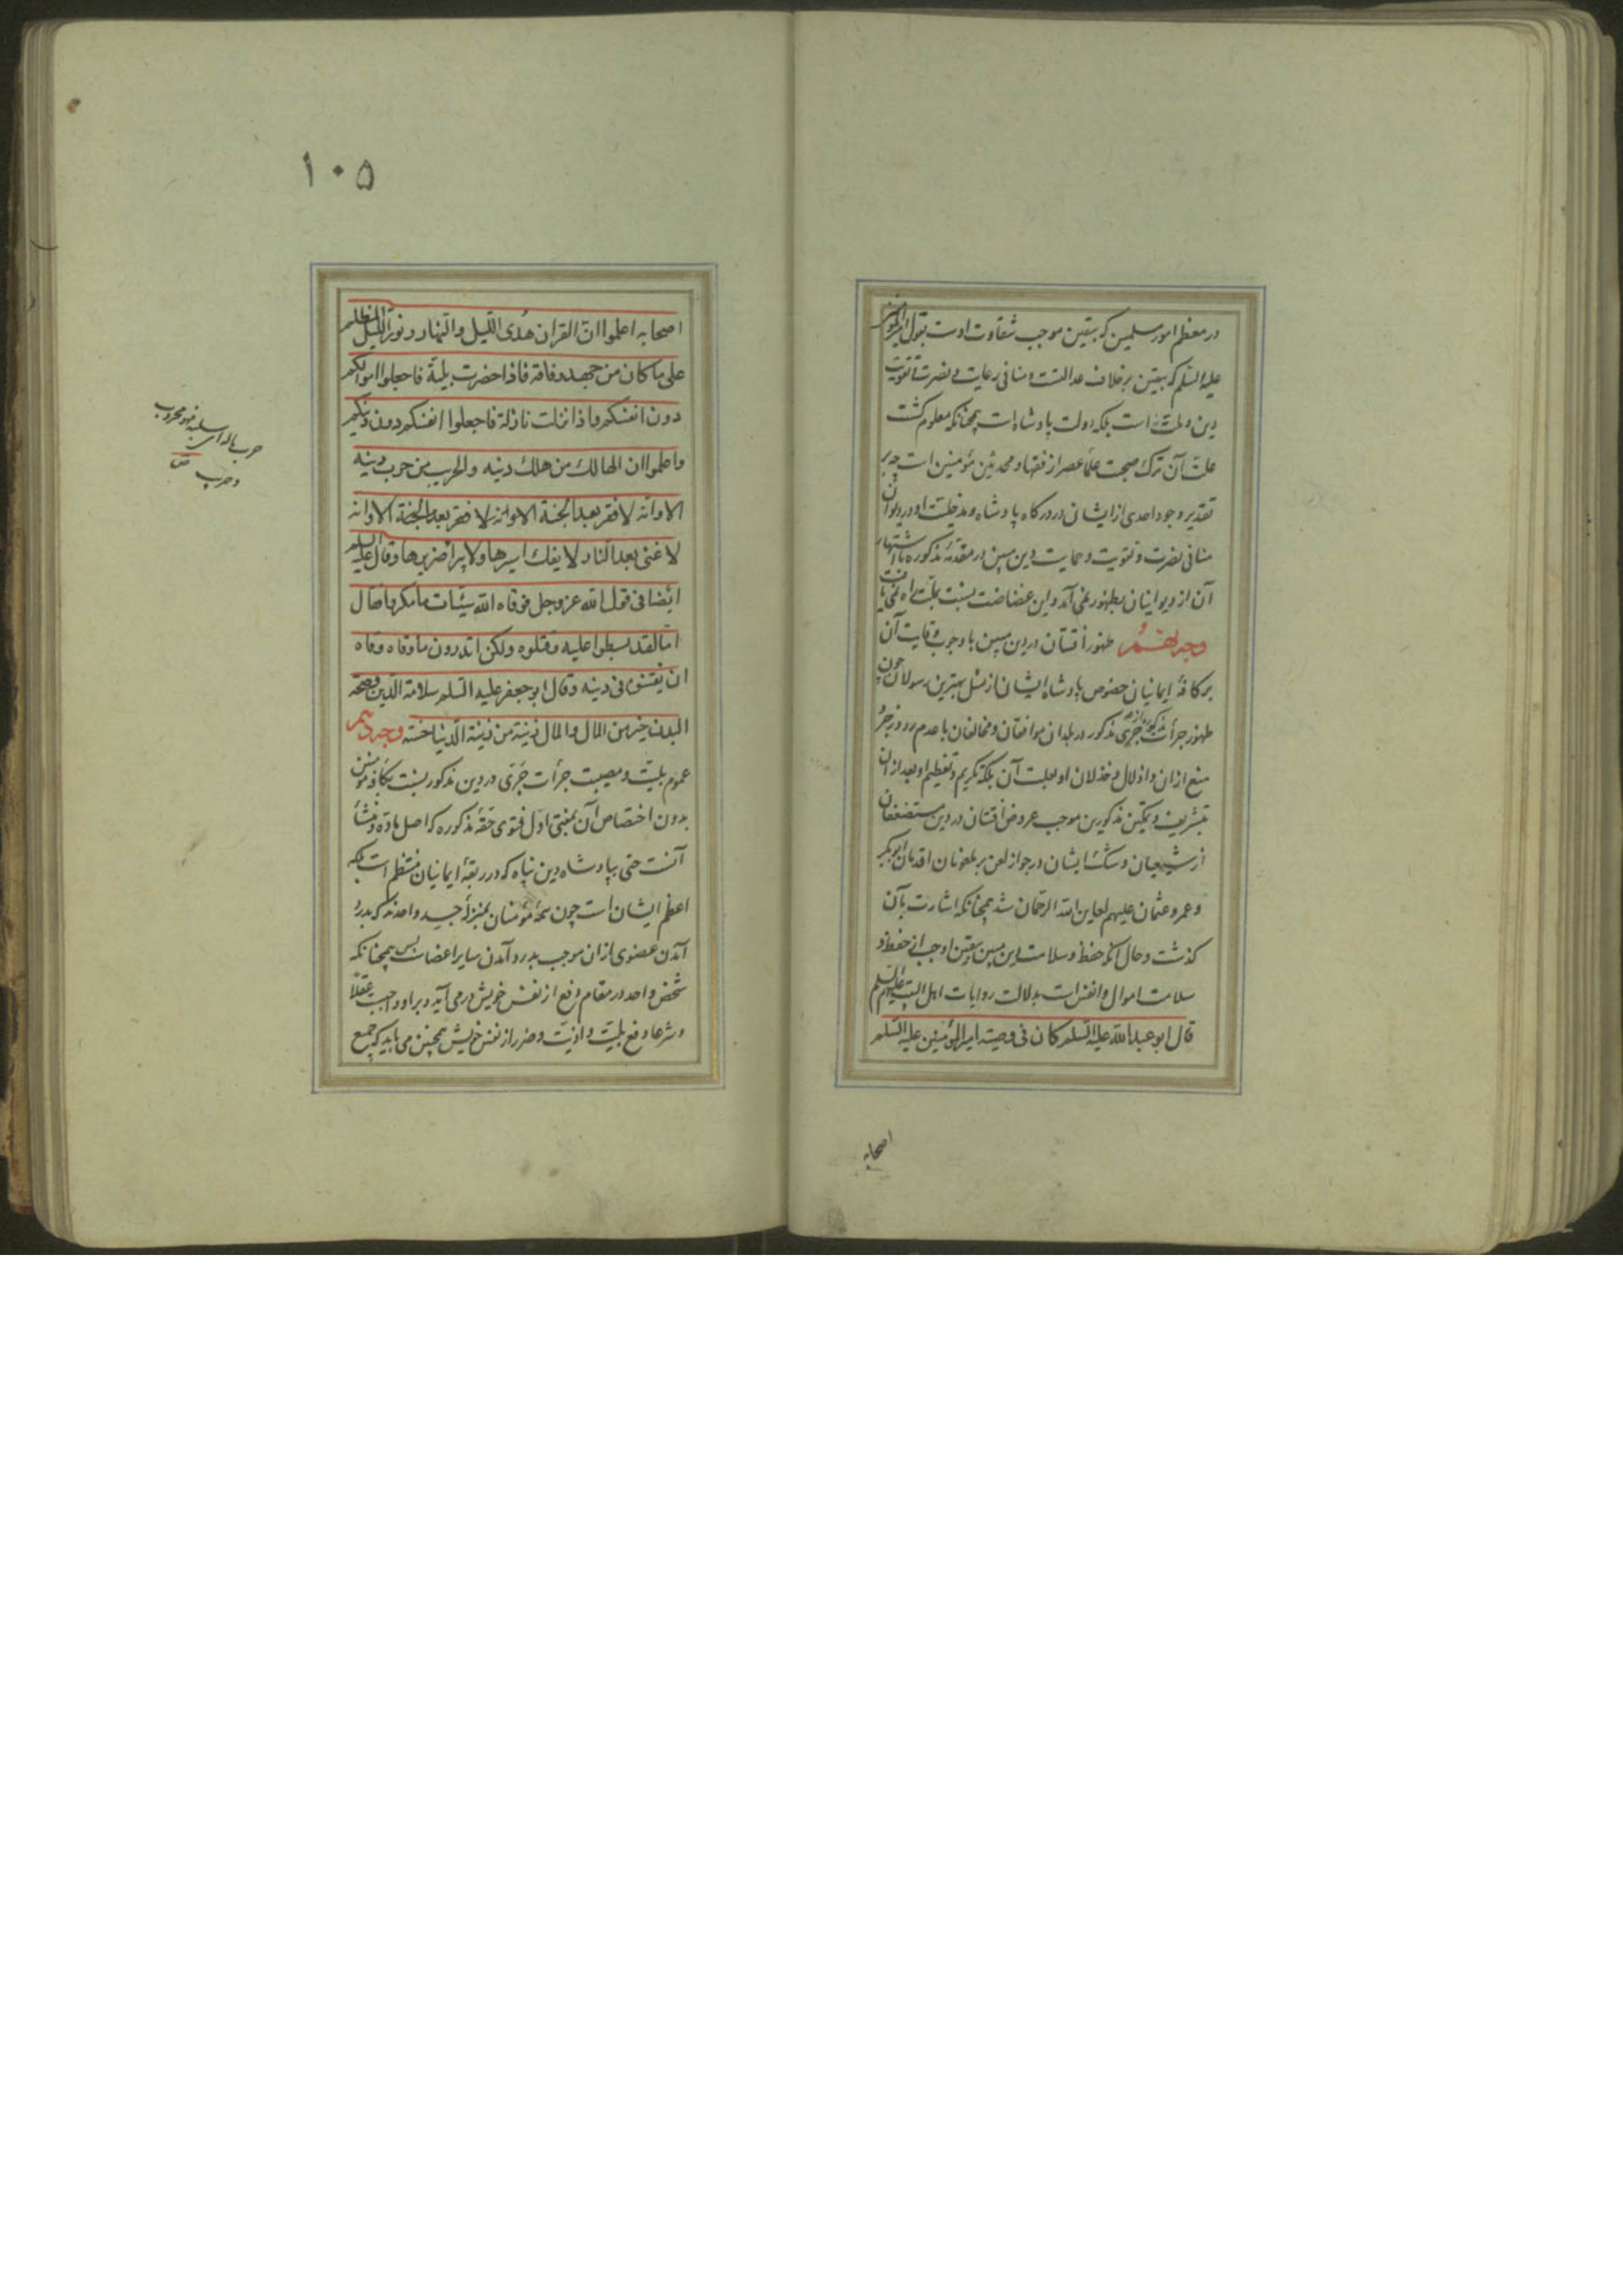 در معظم امور مسلمین که بیقین موجب شقاوت اوست بقول امیر المؤمنین
علیه السّلم که بیقین برخلاف عدالتست و منافی رعایت و نصرت و تقویت
دین و ملّت است بلکه دولت پادشاه است همچنانکه معلوم کشت
علّت آن ترک صحبت علماء عصر از فقها و محدثین مؤمنین است چه بر
تقدیر وجود احدی از ایشان در درکاه پادشاه و مدخلیت او در دیوان
منافی نصرت و تقویت و حمایت دین مبین در مقدمهٔ مذکوره با اشتهار
آن از دیوانیان بظهور نمی آمد و این غضاضت بنسبت بملّت راه نمی یافت
وجه نهم ظهور افتتان در دین مبین با وجوب وقایت آن
بر کافهٔ ایمانیان خصوص پادشاه ایشان از مثل بهترین رسولان چون
ظهور جرأت جری مذکور در بلدان موافقان و مخالفان با عدم ورود زجر و
منع از ان و اذلال و خذلان او بعلت آن بلکه تکریم و تعظیم او بعد از ان
بتشریف و تمکین مذکورین موجب عروض افتتان در دین مستضعفان
از شیعیان و شک ایشان در جواز لعن بر ملعونان اقدمان ابوبکر
و عمر و عثمان علیهم لعاین الله الرحمان شد همچنانکه اشارت بآن
کذشت و حال آنکه حفظ و سلامت دین مبین بیقین اوجب از حفظ و
سلامت اموال و انفس است بدلالت روایات اهل البیت علیهم السّلم
قال ابو عبد الله علیه السّلم کان فی وصیّة امیر المؤمنین علیه السّلم
اصحابه
۱۰۵
اصحابه اعلموا انّ القران هُدی اللّیل والنّهار و نور اللیل المظلم
علی ما کان من جهد و فاقة فاذا حضرت بلیّة فاجعلوا اموالکم
دون انفسکم و اذا نزلت نازلة فاجعلوا انفسکم دون دینکم
واعلموا ان الهالک من هلک دینه والحریب من حرب دینه
الا و انّه لا فقر بعد الجنة الا و انه لا فقر بعد الجنة الا و انه
لا غنی بعد النار لا یفک اسیرها ولا یبرأ ضریرها و قال علیه السلم
ایضا فی قول الله عز وجل فوقاه الله سیّئات ما مکروا فقال
اما لقد بسطوا علیه و قتلوه ولکن اتدرون ما وقاه وقاه
ان یفتنوه فی دینه و قال ابو جعفر علیه السّلم سلامة الدّین و صحّة
البدن خیر من المال والمال زینة من زینة الدّنیا حسنه وجه دهم
عموم بلیّت و مصیبت جرأت جَرّی در دین مذکور بنسبت بکافهٔ مؤمنین
بدون اختصاص آن بمفتی اوّل فتوی حقهٔ مذکوره که اصل ماده و منشأ
آنست حتی بپادشاه دین پناه که در ربقهٔ ایمانیان منتظم است بلکه
اعظم ایشان است چون همهٔ مؤمنان بمنزلهٔ جسد واحدند که بدرد
آمدن عضوی از ان موجب بدرد آمدن سایر اعضاست پس همچنانکه
شخص واحد در مقام دفع از نفس خویش در می آید و بر او واجبست عقلاً
و شرعا دفع بلیّت و اذیّت و ضرر از نفس خویش همچنین می باید که جمیع
حرب ماله ای سلبه فهو محروب
و حریب ص